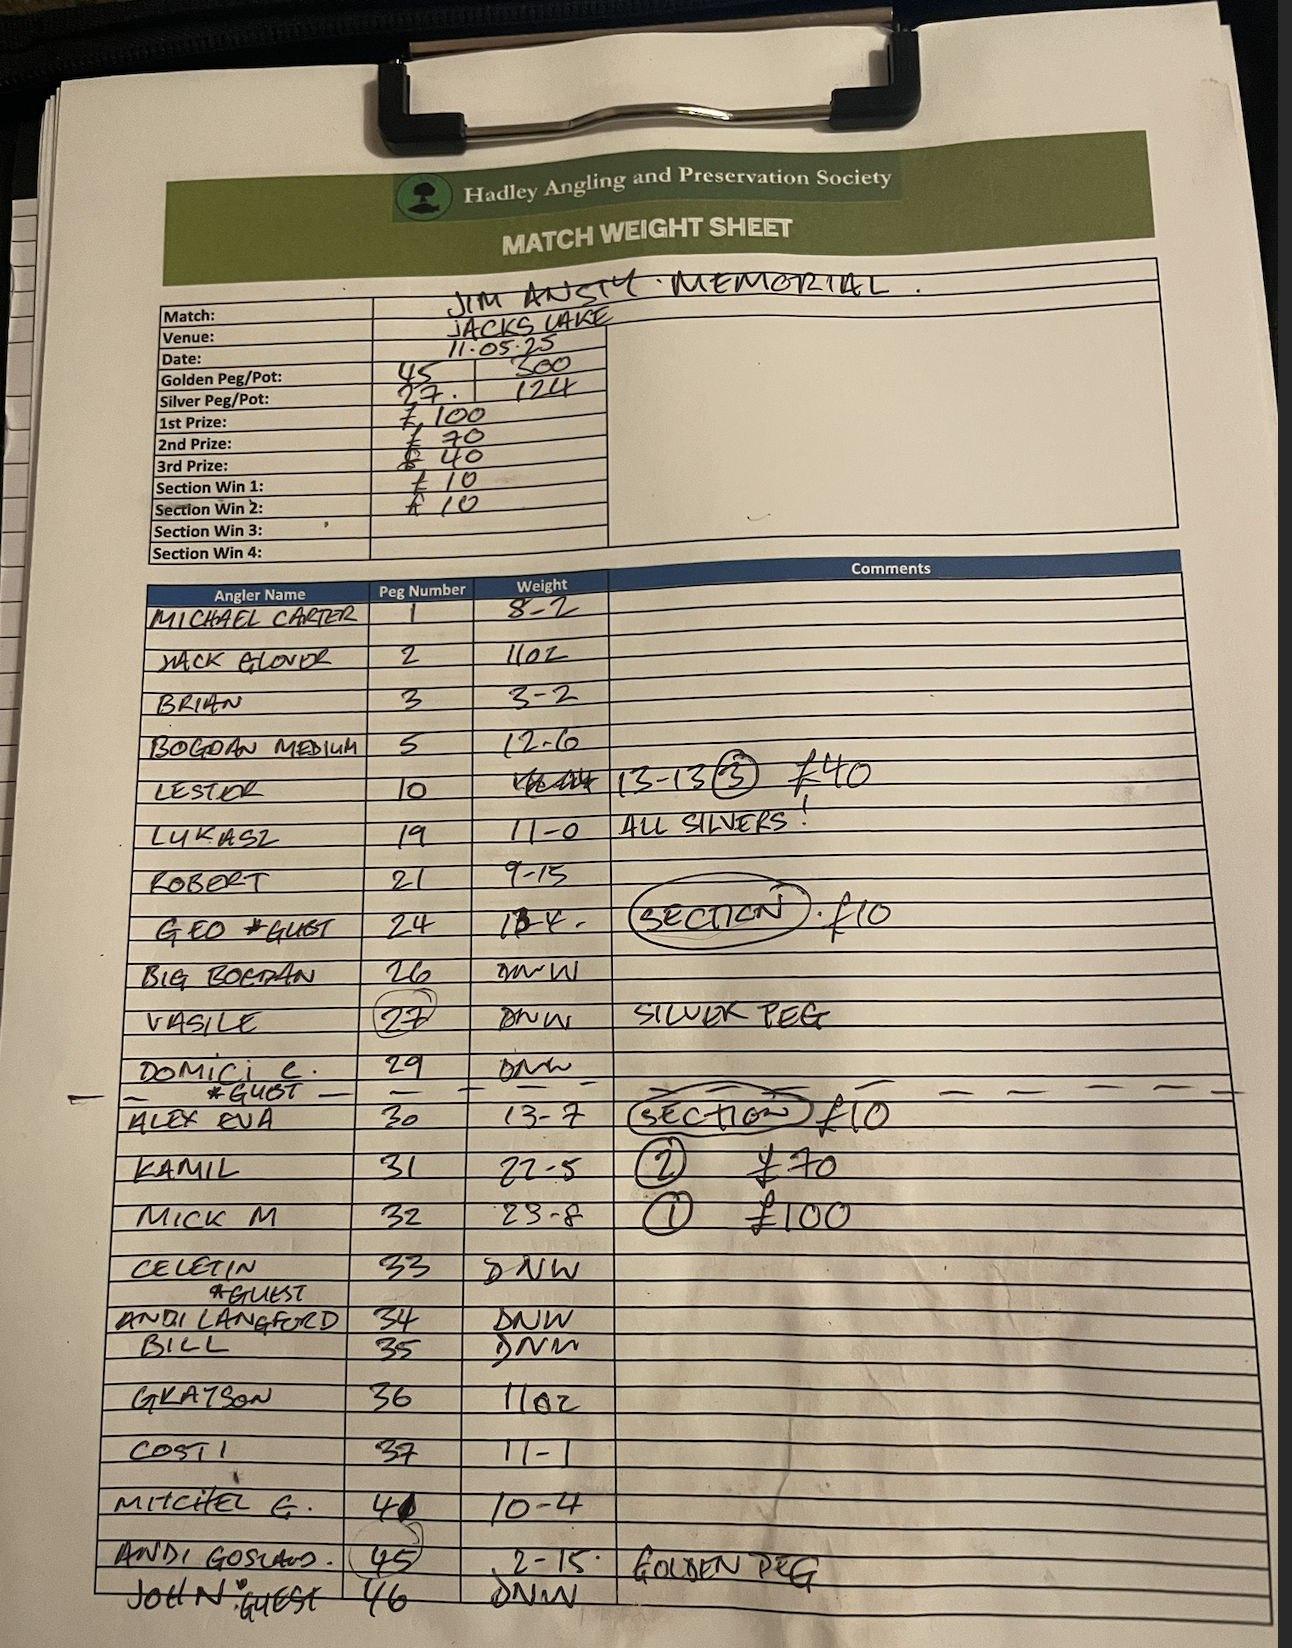 Hadley Angling and Preservation Society
MATCH WEIGHT SHEET
Match: JIM ANSTY. MEMORIAL.
Venue: JACKS LAKE
Date: 11.05.25
Golden Peg/Pot: 45 300
Silver Peg/Pot: 27. 124
1st Prize: £ 100
2nd Prize: £ 70
3rd Prize: £ 40
Section Win 1: £ 10
Section Win 2: £ 10
Section Win 3:
Section Win 4:
Angler Name Peg Number Weight Comments
MICHAEL CARTER 1 8-2
JACK GLOVER 2 11oz
BRIAN 3 3-2
BOGDAN MEDIUM 5 12-6
LESTOR 10 13-13 3 £40
LUKASZ 19 11-0 ALL SILVERS!
ROBERT 21 9-15
GEO *GUEST 24 SECTION. £10
BIG BOGDAN 26 DNW
VASILE 27 DNW SILVER PEG
DOMICI C. 29 DNW
*GUEST
ALEX EVA 30 13-7 SECTION £10
KAMIL 31 22-5 2 £70
MICK M 32 23-8 1 £100
CELETIN 33 DNW
*GUEST
ANDI LANGFORD 34 DNW
BILL 35 DNW
GRAYSON 36 11oz
COSTI 37 11-1
MITCHEL G. 10-4
ANDI GOSLAND. 45 2-15. GOLDEN PEG
JOHN *GUEST 46 DNW